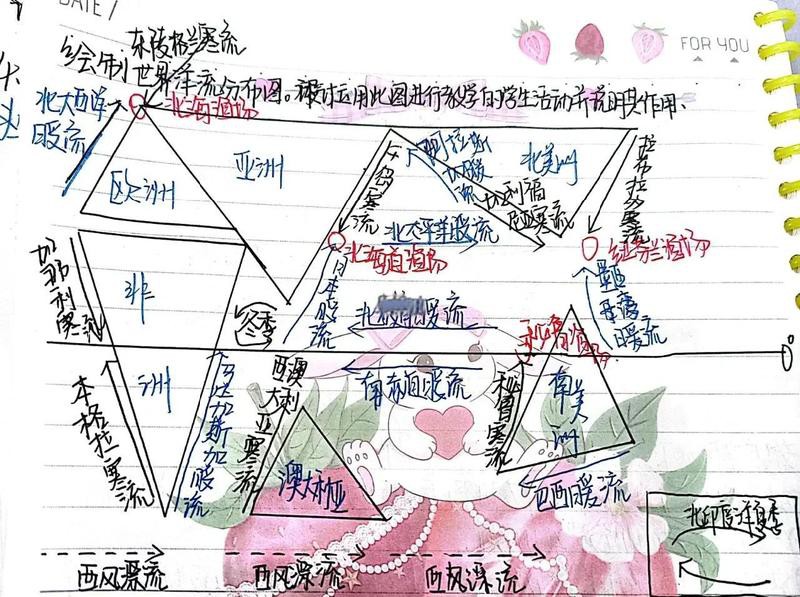 DATE /
FOR YOU
东格陵兰寒流
绘制世界洋流分布图。探讨运用此图进行教学的学生活动并说明其作用、
北大西洋
暖流
北海渔场
欧洲
亚洲
千岛寒流
阿拉斯加暖流
北美洲
加利福尼亚寒流
拉布拉多寒流
北太平洋暖流
北海道渔场
纽芬兰渔场
加那利寒流
非
洲
冬季
日本暖流
北赤道暖流
墨西哥湾暖流
秘鲁渔场
0°
本格拉寒流
马达加斯加暖流
西澳大利亚寒流
南赤道暖流
秘鲁寒流
南美洲
澳大利亚
巴西暖流
北印度洋夏季
西风漂流
西风漂流
西风漂流